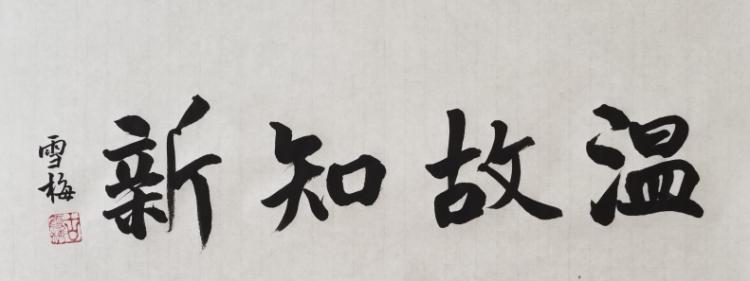 温故知新
雪梅